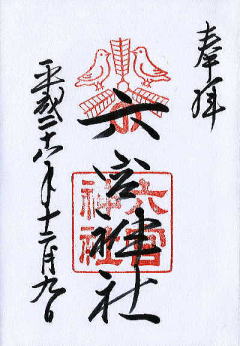 奉拝
六宮神社
六宮神社
平成二十六年十二月九日